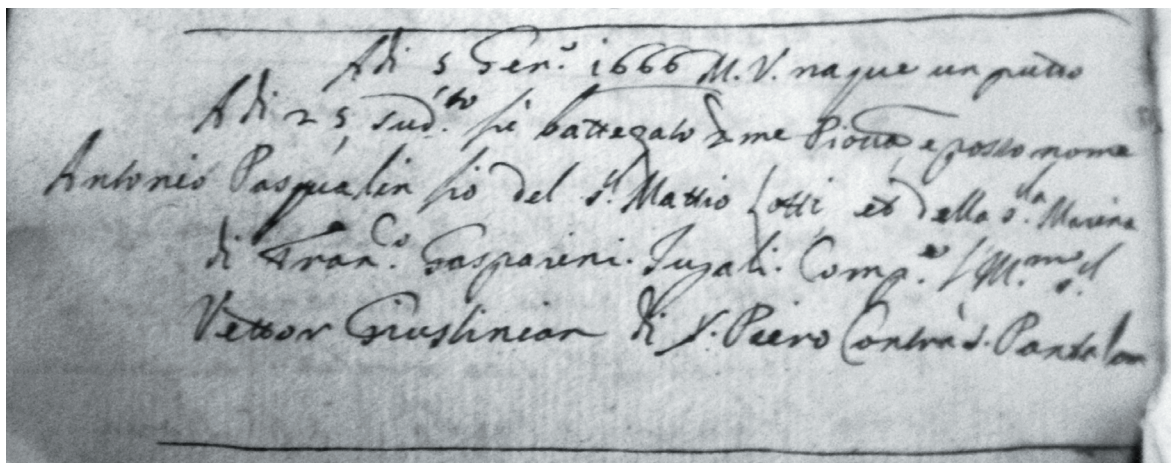 Adi 5 Gen.º 1666 M.V. naque un putto
Adi 25 sud.to fù battezato da me Piovā e posto nome
Antonio Pasqualin fio del s.r Mattio Lotti et della s.ra Marina
di Fran.co Gasparini. Jugali. Comp.e l'Ill.mo s.r
Vettor Giustinian di S. Piero Contrà S. Pantalon